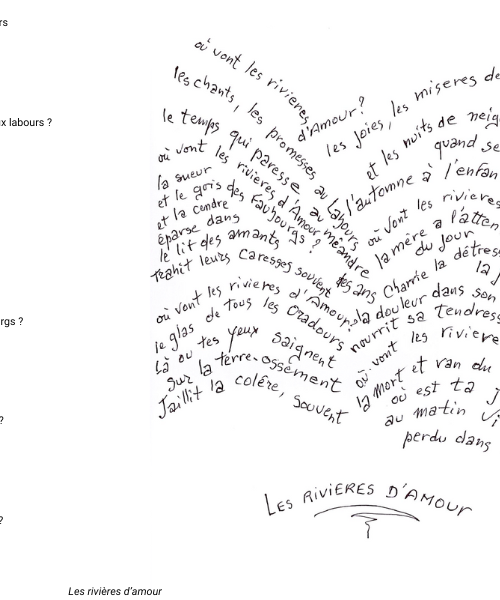 rs
x labours ?
rgs ?
?
?
où vont les rivieres
d'Amour?
les chants, les promesses
le temps qui paresse au Labours
où vont les rivieres d'Amour
la sueur
et le gris des Faubourgs ?
et la cendre
éparse dans
le lit des amants
trahit leurs caresses souvent
où vont les rivieres d'Amour?
le glas de tous les Oradours
là ou tes yeux saignent
sur la terre-ossement
Jaillit la colére, souvent
les joies, les miseres de
et les nuits de neig
quand se
l'automne à l'enfan
où vont les rivieres
la mére a l'atten
du jour
charrie la détres
la j
la douleur dans son
nourrit sa tendress
où vont les riviere
la mort et van du
où est ta J
au matin
perdu dans
LES RIVIERES D'AMOUR
Les rivières d'amour